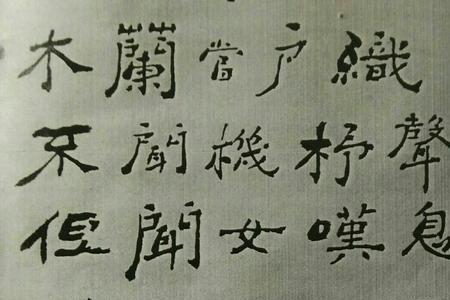 木蘭當戶織
不聞機杼聲
但聞女嘆息